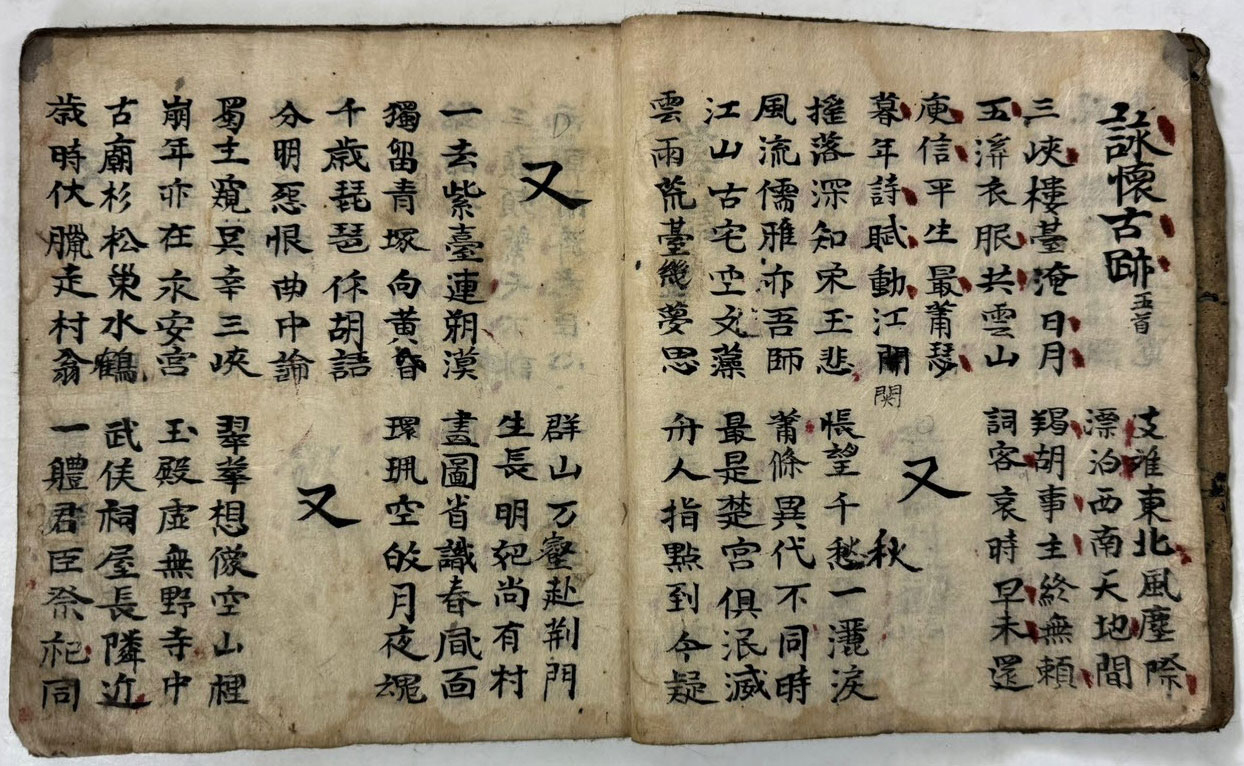 詠懷古跡五首
支離東北風塵際
漂泊西南天地間
三峽樓臺淹日月
五溪衣服共雲山
羯胡事主終無賴
詞客哀時早未還
庾信平生最蕭瑟
暮年詩賦動江關
関
又
搖落深知宋玉悲
風流儒雅亦吾師
悵望千愁一灑淚
秋
蕭條異代不同時
江山古宅空文藻
雲雨荒臺幾夢思
最是楚宮俱泯滅
舟人指點到今疑
又
群山万壑赴荊門
生長明妃尚有村
一去紫臺連朔漠
獨留青塚向黃昏
畫圖省識春風面
環珮空皈月夜魂
千歲琵琶作胡語
分明怨恨曲中論
又
蜀主窺吳幸三峽
崩年亦在永安宮
翠華想像空山裡
玉殿虛無野寺中
古廟杉松巢水鶴
歲時伏臘走村翁
武侯祠屋長隣近
一體君臣祭祀同